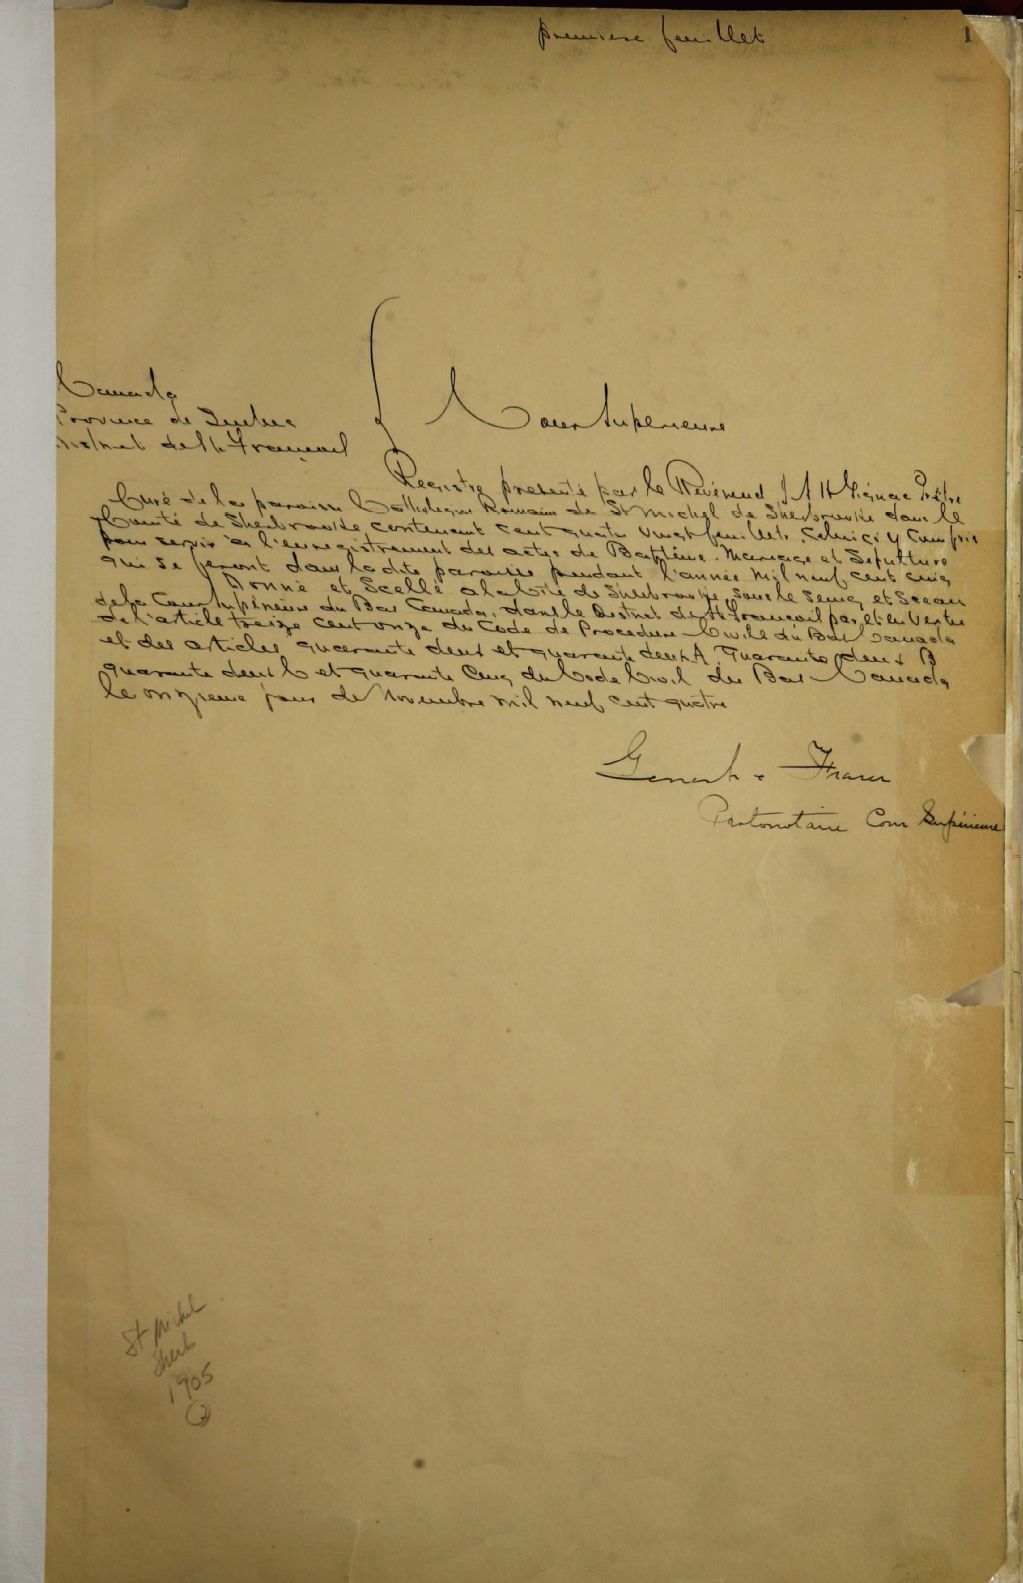 première feuillet
1
Canada
Province de Québec
District de St François
Cour Supérieure
Registre présenté par le Révérend J A H Gignac Prêtre
Curé de la paroisse Catholique Romaine de St Michel de Sherbrooke dans le
Comté de Sherbrooke contenant cent quatre vingt feuillets, celui ci y compris
pour servir à l'enregistrement des actes de Baptême, Mariage et Sépulture
qui se feront dans la dite paroisse pendant l'année Mil neuf cent cinq
Donné et Scellé a la Cité de Sherbrooke, sous le Seing et Sceau
de la Cour Supérieure du Bas Canada, dans le District de St François par, et en Vertu
de l'article treize cent onze du Code de Procédure Civile du Bas Canada
et des articles quarante deux et quarante deux A, quarante deux B
quarante deux C et quarante Cinq du Code Civil du Bas Canada
le onzieme jour de Novembre Mil neuf cent quatre
Genest & Fraser
Protonotaire Cour Supérieure
St Michel
Sherb
1905